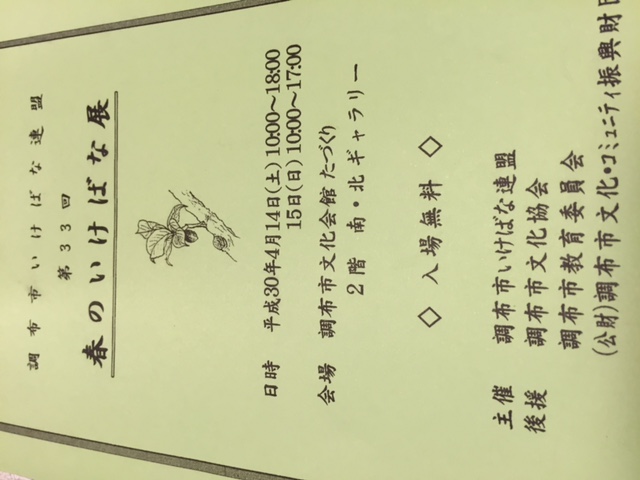 調布市いけばな連盟
第33回
春のいけばな展
日時 平成30年4月14日(土)10:00~18:00
15日(日)10:00~17:00
会場 調布市文化会館たづくり
2階 南・北ギャラリー
◇ 入場無料 ◇
主催 調布市いけばな連盟
後援 調布市文化協会
調布市教育委員会
(公財)調布市文化・コミュニティ振興財